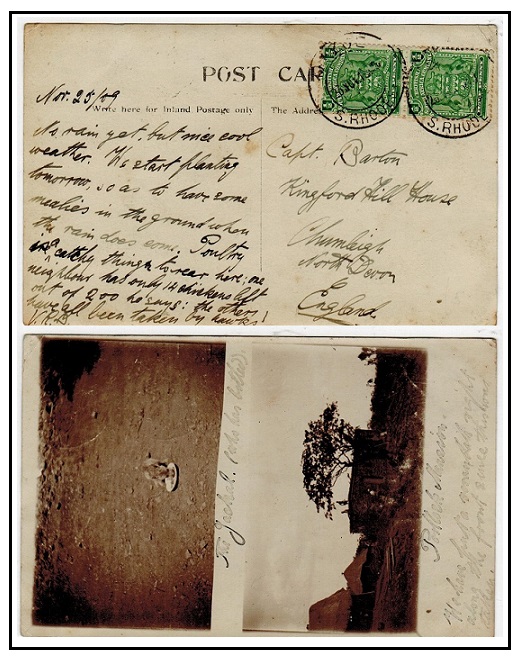 POST CAR
Nov. 25/09
Write here for Inland Postage only
The Addre
No rain yet, but nice cool
weather. We start planting
tomorrow, so as to have some
mealies in the ground when
the rain does come. Poultry
are catchy things to rear here; one
neighbour has only 14 chickens left
out of 200 he says: the others
have all been taken by hawks!
V.R.B
Capt. Barton
Kingford Hill House
Chumleigh
North Devon
England
S.RHODE
S.RHODE
The Jackal
We have got a verandah right
along the front since